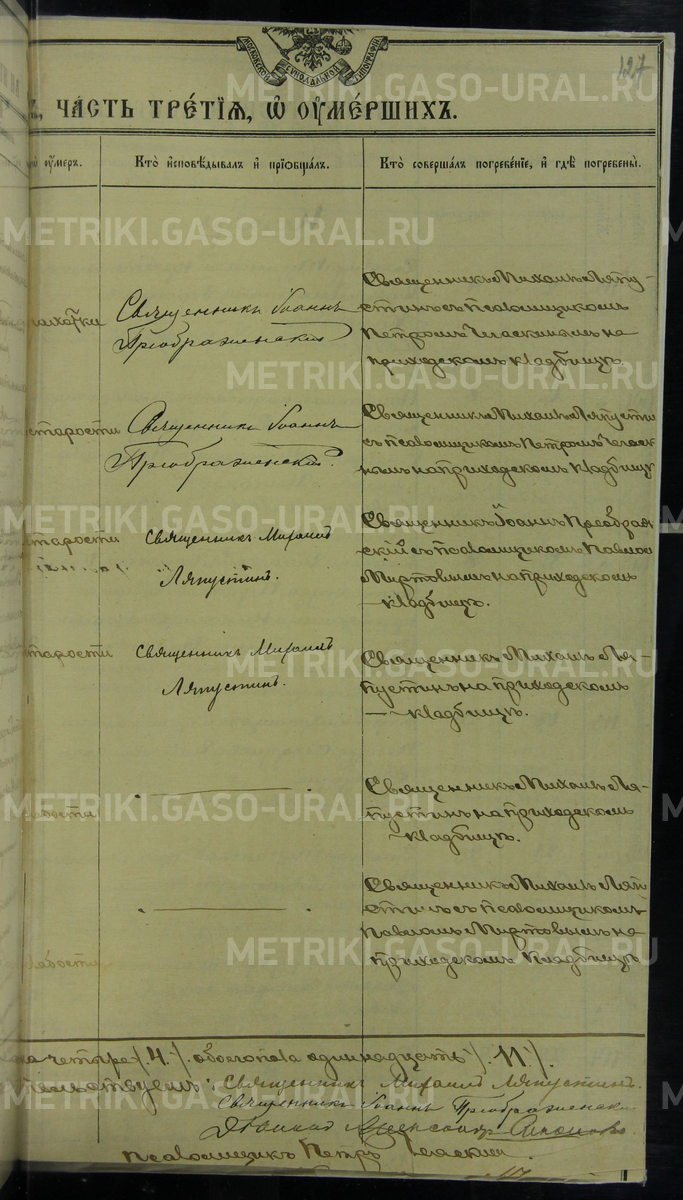 МОСКОВСКОЙ СѴНОДАЛЬНОЙ ТИПОГРАФІИ
127
ЧА́СТЬ ТРЕ́ТІѦ, Ѡ ОУ҆МЕ́РШИХЪ.
оу҆меръ.
Кто̀ и҆сповѣ́дывалъ и҆ прїобща́лъ.
Кто̀ соверша́лъ погребе́нїе, и҆ гдѣ̀ погребены̀.
Священникъ Іоаннъ
Преображенскій
Священникъ Михаилъ Ляпу-
стинъ съ псаломщикомъ
Петромъ на
приходскомъ кладбищѣ
старости
Священникъ Іоаннъ
Преображенскій.
Священникъ Михаилъ Ляпусти
съ псаломщикомъ Петромъ
на приходскомъ кладбищѣ
старости
Священникъ Михаилъ
Ляпустинъ.
Священникъ Іоаннъ Преображен
скій съ псаломщикомъ Павлом
Миртовымъ на приходскомъ
кладбищѣ.
старости
Священникъ Михаилъ
Ляпустинъ.
Священникъ Михаилъ Ля-
пустинъ на приходскомъ
кладбищѣ.
Священникъ Михаилъ Ля-
пустинъ на приходскомъ
кладбищѣ.
Священникъ Михаилъ Ляпу
стинъ съ псаломщикомъ
Павломъ Миртовымъ на
приходскомъ кладбищѣ
четыре /.4./. обоего пола одинадцать /.11./.
Священникъ Михаилъ Ляпустинъ.
Священникъ Іоаннъ Преображенскій
Діаконъ Александръ
Псаломщикъ Петръ
METRIKI.GASO-URAL.RU